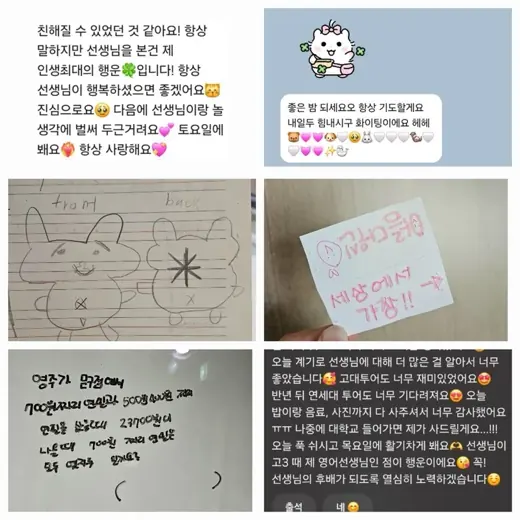 친해질 수 있었던 것 같아요! 항상
말하지만 선생님을 본건 제
인생최대의 행운🍀입니다! 항상
선생님이 행복하셨으면 좋겠어요😽
진심으로요🥹 다음에 선생님이랑 놀
생각에 벌써 두근거려요💕 토요일에
봬요❤️‍🔥 항상 사랑해요💖
좋은 밤 되세요오 항상 기도할게요
내일두 힘내시구 화이팅이에요 헤헤
front back
세상에서
가장!!
영주가 문구점에서
700원짜리 연필과 500원
연필을 23700원
700원 짜리 연필은
모두 몇
오늘 계기로 선생님에 대해 더 많은 걸 알아서 너무
좋았습니다🥰 고대투어도 너무 재미있었어요😍
반년 뒤 연세대 투어도 너무 기다려져요😍 오늘
밥이랑 음료, 사진까지 다 사주셔서 너무 감사했어요
ㅠㅠ 나중에 대학교 들어가면 제가 사드릴게요...!!!
오늘 푹 쉬시고 목요일에 활기차게 봬요🫶 선생님이
고3 때 제 영어선생님인 점이 행운이에요😘 꼭!
선생님의 후배가 되도록 열심히 노력하겠습니다☺️
출석 네😊